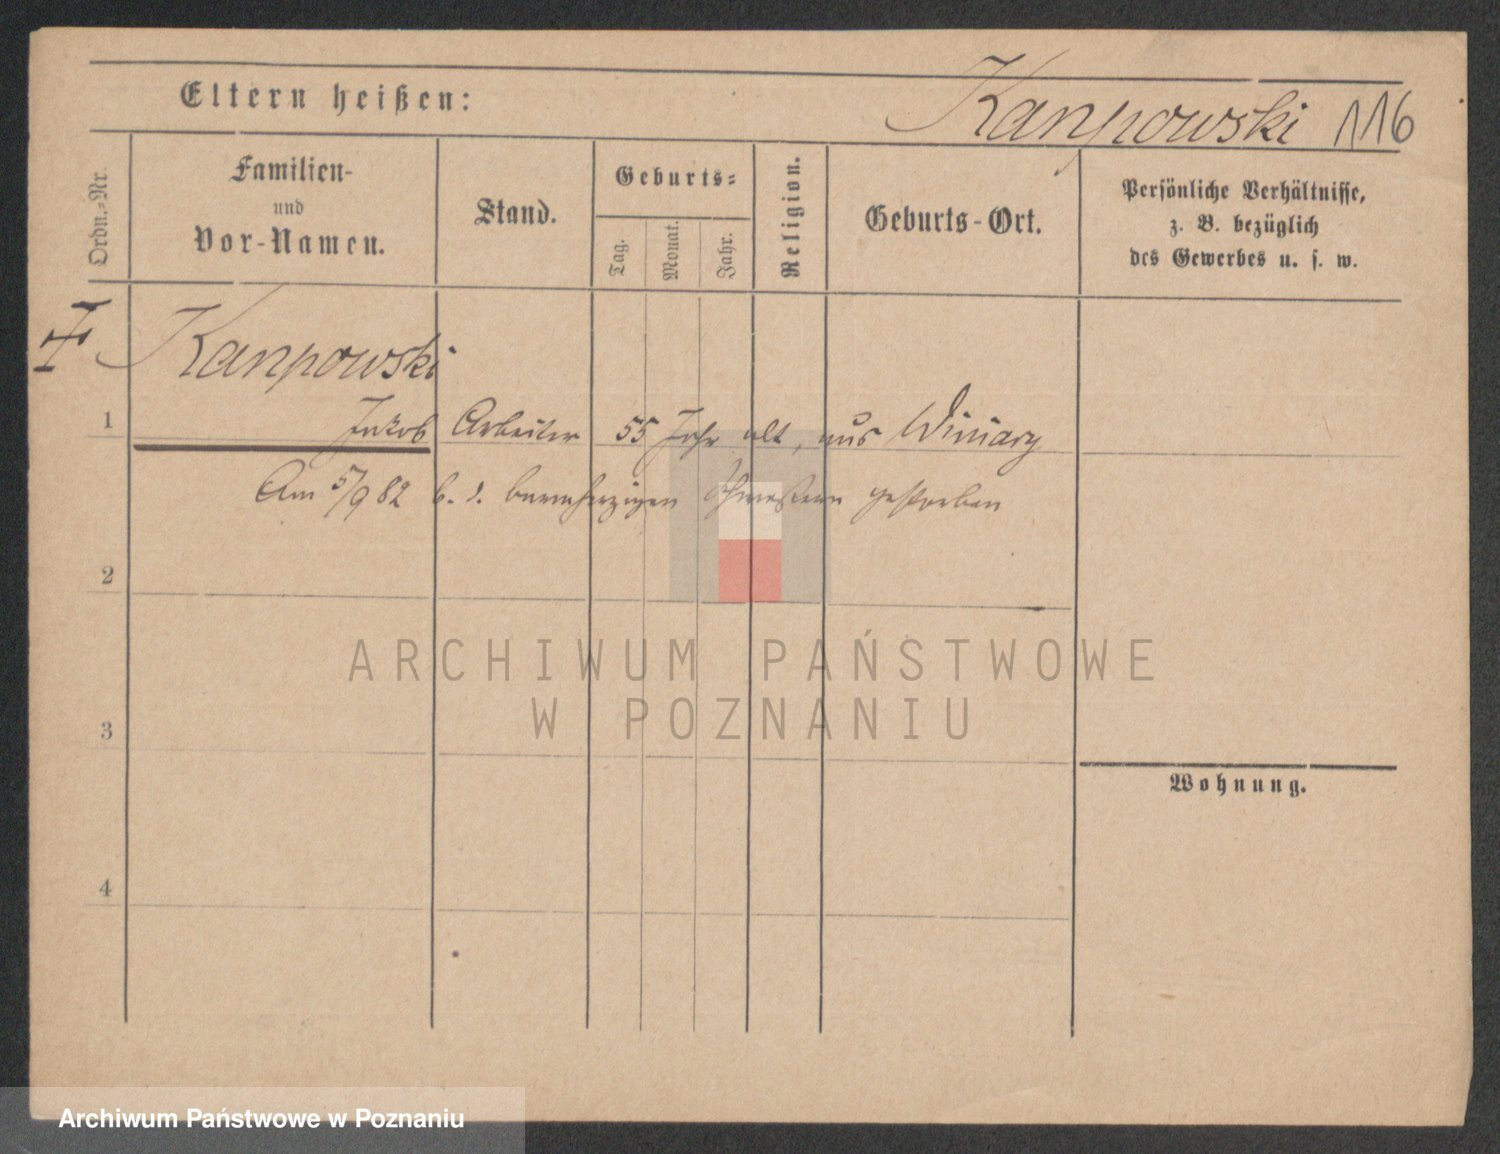 Eltern heißen:
Kanpowski 116
Ordn.-Nr.
Familien-
und
Vor-Namen.
Stand.
Geburts-
Tag.
Monat.
Jahr.
Religion.
Geburts-Ort.
Persönliche Verhältnisse,
z. B. bezüglich
des Gewerbes u. s. w.
Kanpowski
1 Jakob Arbeiter 55 Jahr alt, aus Winiary
Am 5/9 82 b. d. barmherzigen Schwestern gestorben
2
3
4
Wohnung.
ARCHIWUM PAŃSTWOWE
W POZNANIU
Archiwum Państwowe w Poznaniu